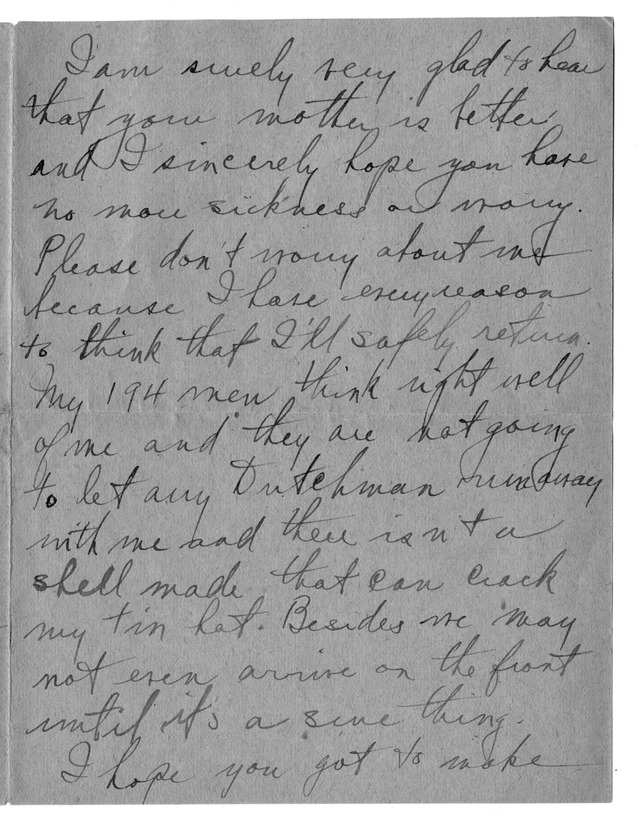 I am surely very glad to hear
that your mother is better
and I sincerely hope you have
no more sickness or worry.
Please don't worry about me
because I have every reason
to think that I'll safely return.
My 194 men think right well
of me and they are not going
to let any Dutchman run away
with me and there isn't a
shell made that can crack
my tin hat. Besides we may
not even arrive on the front
until it's a sure thing.
I hope you got to make